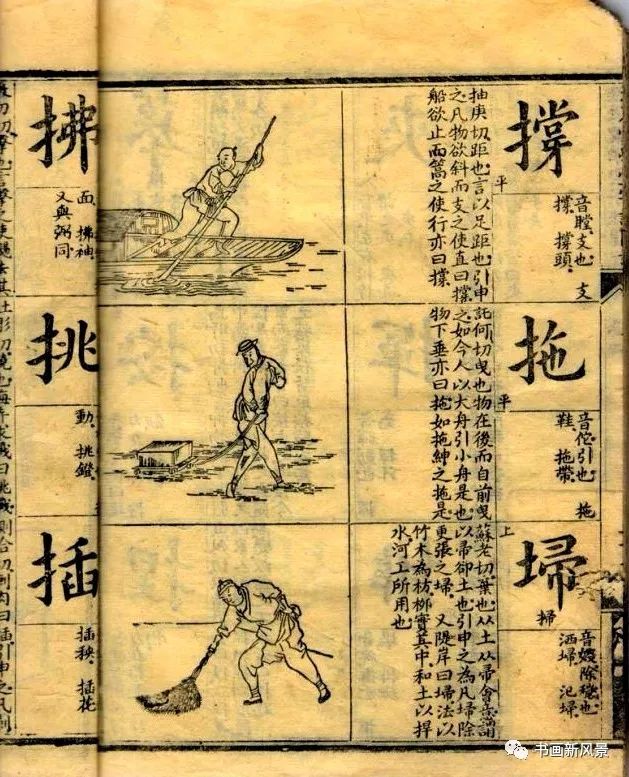 撐
音瞠支也 支
撐 撐頭
平
抽庚切距也言以足距也引申
之凡物欲斜而支之使直曰撐
船欲止而篙之使行亦曰撐
拖
音佗引也 拖
鞋 拖帶
平
託何切曳也物在後而自前曳
之如今人以大舟引小舟是也
物下垂亦曰拖如拖紳之拖是
埽
掃
音嫂除穢也
洒埽 氾埽
上
蘇老切棄也从土从帚會意謂
以帚卻土也引申之為凡埽除
更張之埽 又隄岸曰埽法以
竹木為枋柳實其中和土以捍
水河工所用也
拂
面 拂袖
又與弼同
挑
動 挑鐙
插
插秧 插花
书画新风景